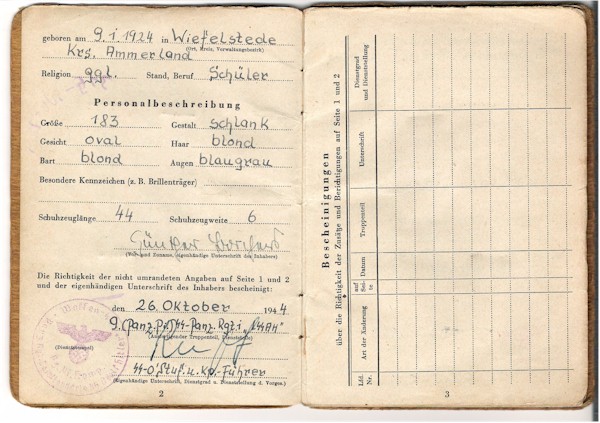 geboren am 9. 1. 1924 in Wiefelstede
(Ort, Kreis, Verwaltungsbezirk)
Krs. Ammerland
Religion ggl. Stand, Beruf Schüler
Personalbeschreibung
Größe 183 Gestalt schlank
Gesicht oval Haar blond
Bart blond Augen blaugrau
Besondere Kennzeichen (z. B. Brillenträger)
Schuhzeuglänge 44 Schuhzeugweite 6
Günther
(Vor- und Zuname, eigenhändige Unterschrift des Inhabers)
Die Richtigkeit der nicht umrandeten Angaben auf Seite 1 und 2
und der eigenhändigen Unterschrift des Inhabers bescheinigt:
den 26. Oktober 1944
9. (Panz. Pi.) SS-Panz. Rgt. 1 "LSSAH"
(Ausfertigender Truppenteil, Dienststelle)
(Dienstsiegel)
SS-O'Stuf. u. Kp.-Führer
(Eigenhändige Unterschrift, Dienstgrad u. Dienststellung d. Vorges.)
2
Bescheinigungen
über die Richtigkeit der Zusätze und Berichtigungen auf Seite 1 und 2
Lfd. Nr.
Art der Änderung
auf Seite
Datum
Truppenteil
Unterschrift
Dienstgrad und Dienststellung
3